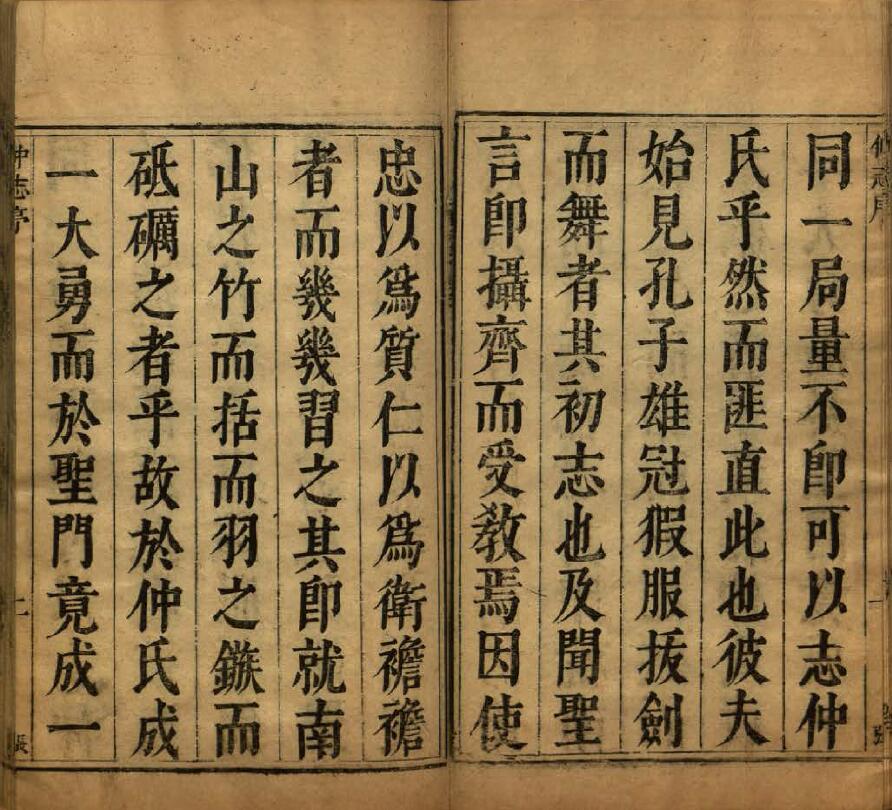 同一局量不卽可以志仲
氏乎然而匪直此也彼夫
始見孔子雄冠猳服拔劍
而舞者其初志也及聞聖
言卽攝齊而受敎焉因使
忠以爲質仁以爲衛襜襜
者而幾幾習之其卽就南
山之竹而括而羽之鏃而
砥礪之者乎故於仲氏成
一大勇而於聖門竟成一
仲志序
二